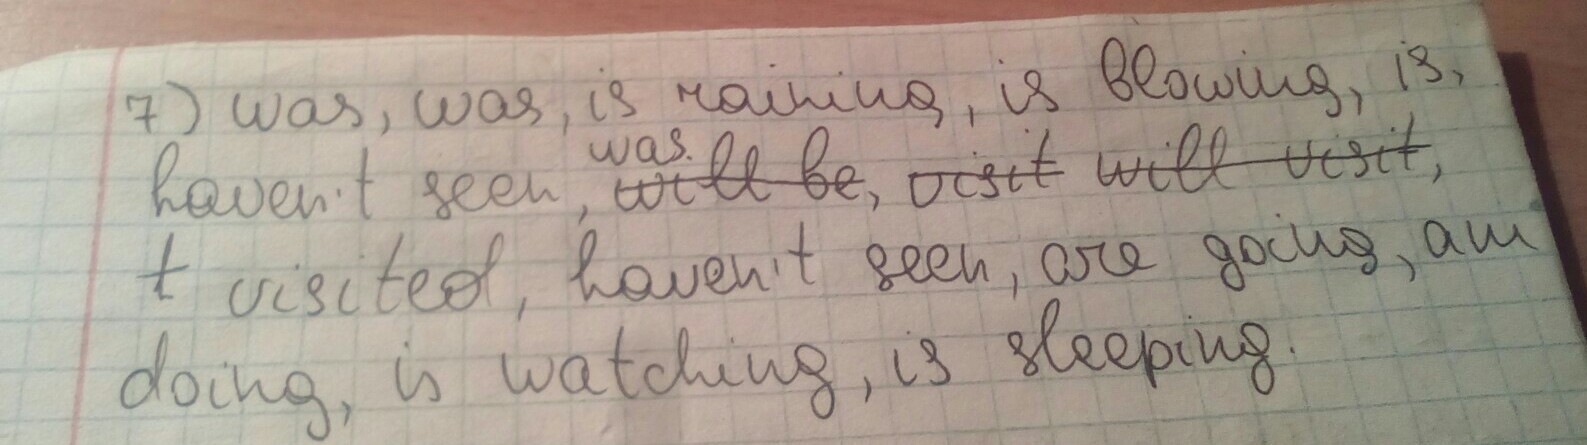 7) was, was, is raining, is blowing, is,
haven't seen, was. will be, visit will visit,
t visited, haven't seen, are going, am
doing, is watching, is sleeping.